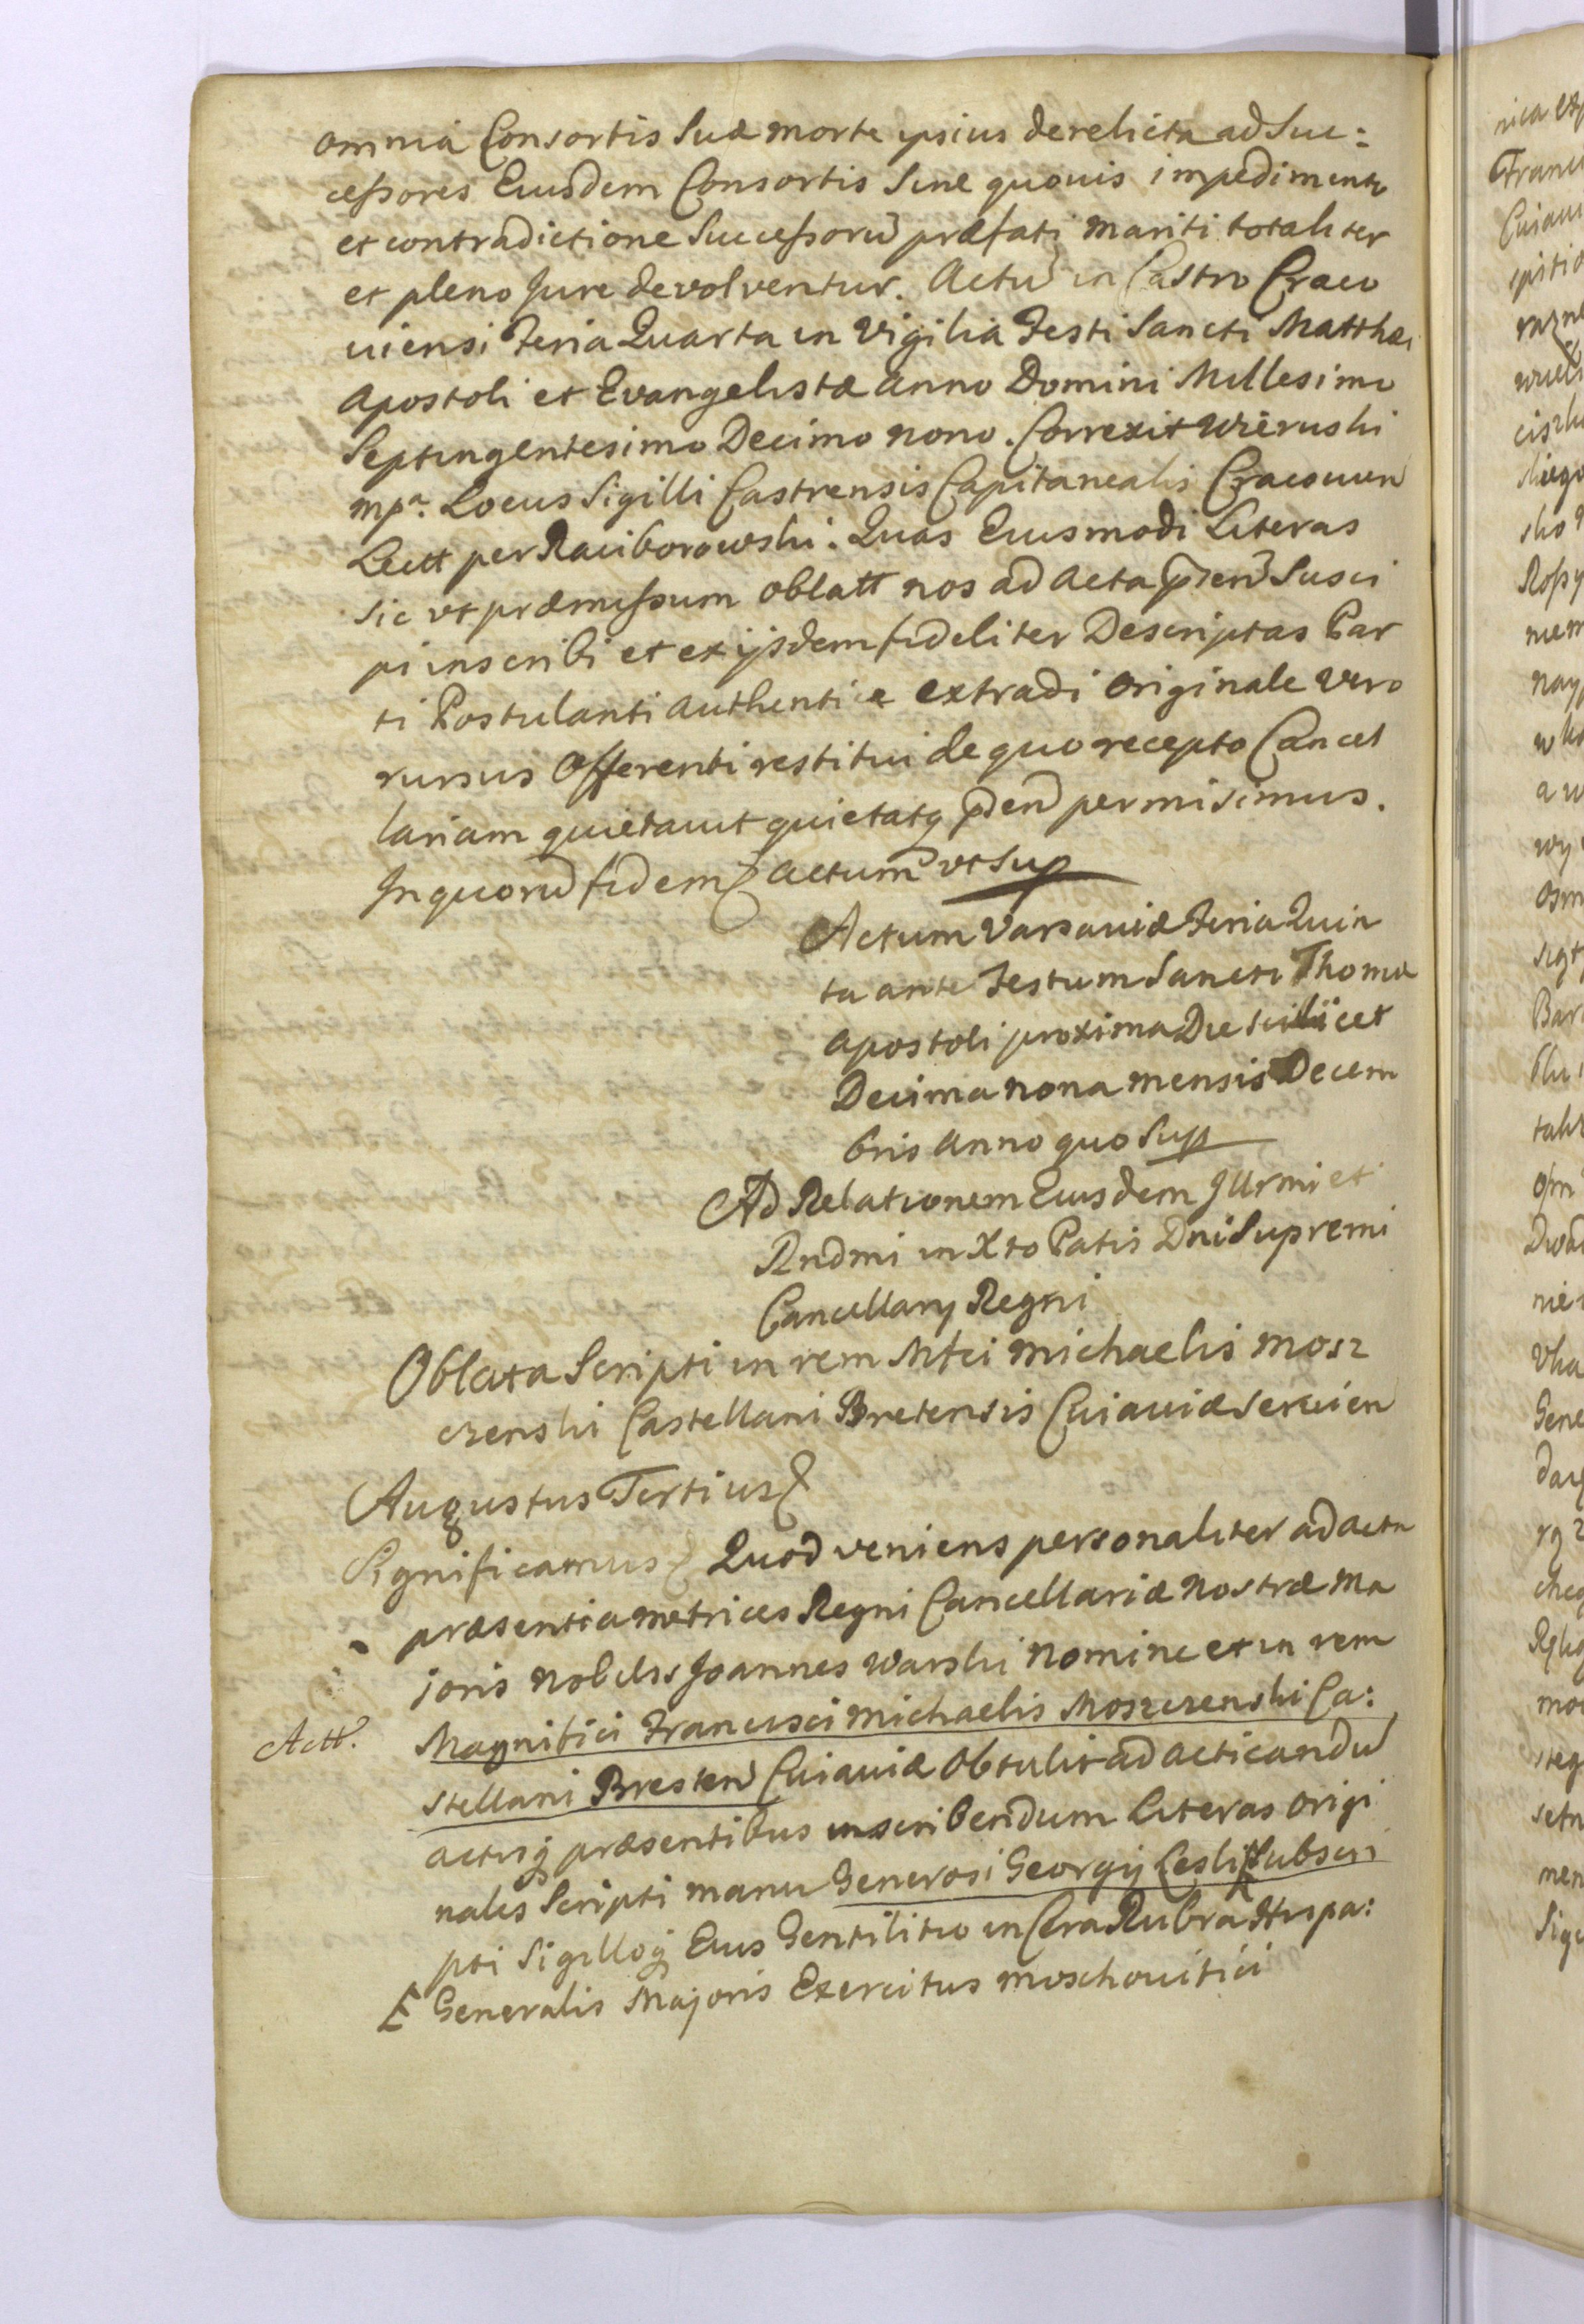 omnia Consortis Suæ morte ipsius derelicta ad Suc:
cessores Eiusdem Consortis Sine quovis impedimento
et contradictione Successorū præfati mariti totaliter
et pleno Jure devolventur. Actū in Castro Craco
uiensi Feria Quarta in Vigilia Festi Sancti Matthæi
Apostoli et Evangelistæ Anno Domini Millesimo
Septingentesimo Decimo nono. Correxit Wieruski
mpa. Locus Sigilli Castrensis Capitanealis Cracouien
Lectt per Raciborowski. Quas Eiusmodi Literas
sic vt præmissum oblatt nos ad Acta p̄ien Susci
pi inscribi et ex ijsdem fideliter Descriptas Par
ti Postulanti Authenticæ extradi Originale vero
rursus Offerenti restitui de quo recepto Cancel
lariam quietauit quietatq p̄ien permisimus.
In quorū fidem Actum vt Sup
Actum Varsauiæ Feria Quin
ta ante Festum Sancti Thomæ
Apostoli proxima Die scilicet
Decima nona mensis Decem
bris Anno quo Sup
Ad Relationem Eiusdem Jllrmi et
Rndmi in Xto Patis Dni Supremi
Cancellarij Regni
Oblata Scripti in rem Mfci Michaelis Mosz
czenski Castellani Bretensis Cuiauiæ Seruien
Augustus Tertius
Significamus Quod veniens personaliter ad acta
præsentia metrices Regni Cancellariæ Nostræ Ma
joris Nobilis Joannes Warski Nomine et in rem
Actt. Magnifici Francisci Michaelis Moszczenski Ca:
stellani Bresten Cuiauiæ Obtulit ad Acticandū
actisq præsentibus inscribendum Literas Origi
nales Scripti manu Generosi Georgij Lesli Subscri
pti Sigilloq Eius Gentilitio in Cera Rubra Hispa:
Generalis Majoris Exercitus Moschouitici